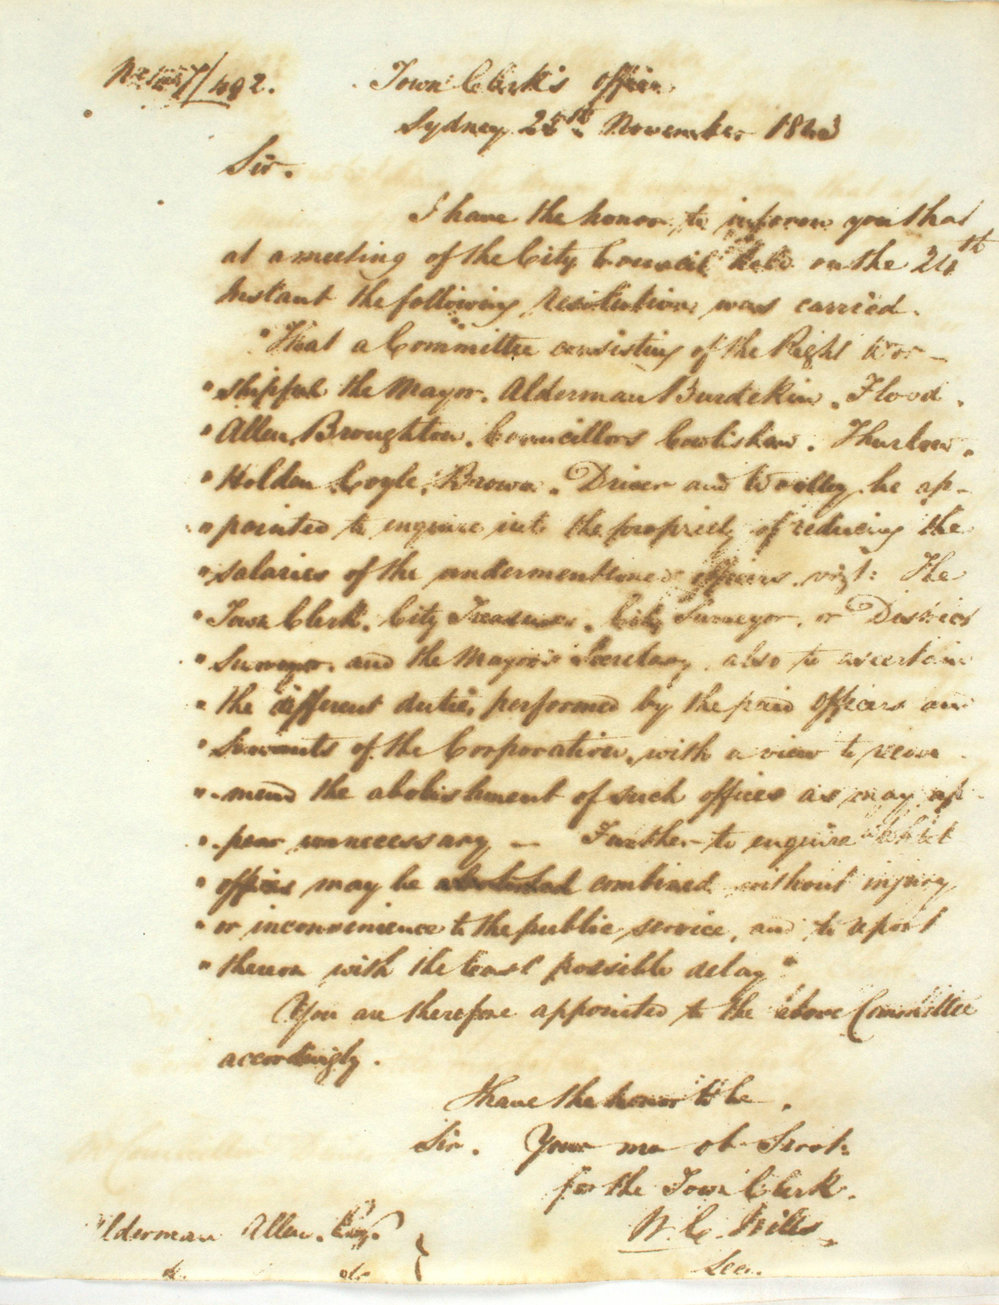 Town Clerk's Office
Sydney 25th November 1843
Sir.
I have the honor to inform you that
at a meeting of the City Council held on the 24th
Instant the following resolution was carried.
"That a Committee consisting of the Right Wor-
"shipful the Mayor. Alderman Burdekin, Flood,
"Allen, Broughton, Councillors Cowlishaw, Thurlow,
"Holden, Coyle, Brown, Driver and Woolley be ap-
"pointed to enquire into the propriety of reducing the
"salaries of the undermentioned officers. vizt: The
"Town Clerk, City Treasurer, City Surveyor, or District
"Surveyor, and the Mayor's Secretary, also to ascertain
"the different duties performed by the paid Officers and
"Servants of the Corporation, with a view to recom-
"-mend the abolishment of such offices as may ap-
"-pear unnecessary — Further to enquire what
"offices may be abolished combined without injury
"or inconvenience to the public service, and to report
"thereon with the least possible delay"
You are therefore appointed to the above Committee
accordingly.
I have the honor to be,
Sir. Your mo ob Servt
for the Town Clerk.
Sec.
Alderman Allen. Esqr.
do do